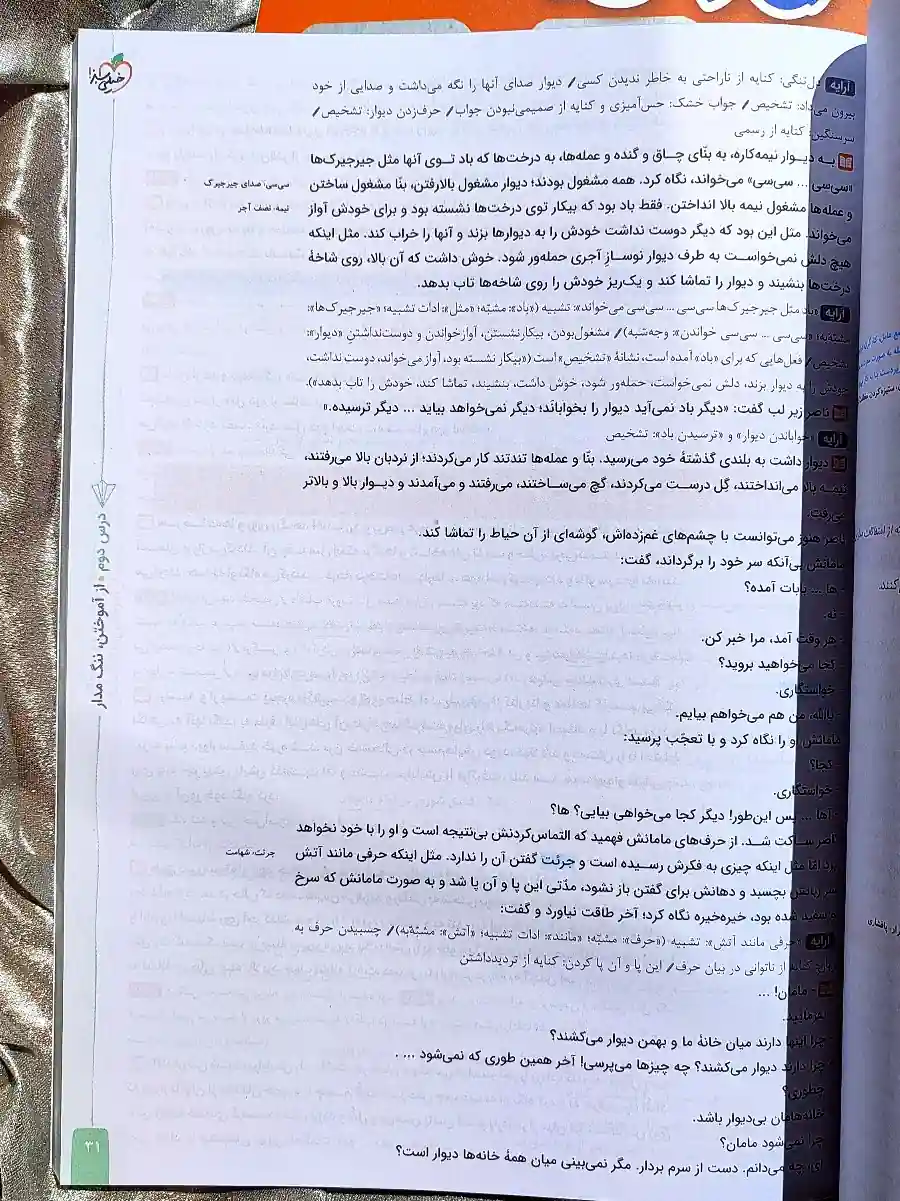 خیلی سبز
آرایه دل‌تنگی: کنایه از ناراحتی به خاطر ندیدن کسی / دیوار صدای آنها را نگه می‌داشت و صدایی از خود
بیرون می‌داد: تشخیص / جواب خشک: حس‌آمیزی و کنایه از صمیمی‌نبودن جواب / حرف‌زدن دیوار: تشخیص /
سرسنگین: کنایه از رسمی
بـه دیـوار نیمه‌کاره، به بنّای چـاق و گنده و عمله‌ها، به درخت‌ها که باد تـوی آنها مثل جیرجیرک‌ها
«سی‌سی ... سی‌سی» می‌خواند، نگاه کرد. همه مشغول بودند؛ دیوار مشغول بالارفتن، بنّا مشغول ساختن
سی‌سی: صدای جیرجیرک
و عمله‌ها مشغول نیمه بالا انداختن. فقط باد بود که بیکار توی درخت‌ها نشسته بود و برای خودش آواز
نیمه: نصف آجر
می‌خواند. مثل این بود که دیگر دوست نداشت خودش را به دیوارها بزند و آنها را خراب کند. مثل اینکه
هیچ دلش نمی‌خواسـت به طرف دیوار نوسـازِ آجری حمله‌ور شود. خوش داشت که آن بالا، روی شاخهٔ
درخت‌ها بنشیند و دیوار را تماشا کند و یک‌ریز خودش را روی شاخه‌ها تاب بدهد.
آرایه «باد مثل جیرجیرک‌ها سی‌سی ... سی‌سی می‌خواند»: تشبیه («باد»: مشبّه؛ «مثل»: ادات تشبیه؛ «جیرجیرک‌ها»:
مشبّه‌به؛ «سی‌سی ... سی‌سی خواندن»: وجه‌شبه) / مشغول‌بودن، بیکارنشستن، آوازخواندن و دوست‌نداشتنِ «دیوار»:
تشخیص / فعل‌هایی که برای «باد» آمده است، نشانهٔ «تشخیص» است («بیکار نشسته بود، آواز می‌خواند، دوست نداشت،
خودش را به دیوار بزند، دلش نمی‌خواست، حمله‌ور شود، خوش داشت، بنشیند، تماشا کند، خودش را تاب بدهد»).
ناصر زیر لب گفت: «دیگر باد نمی‌آید دیوار را بخوابانَد؛ دیگر نمی‌خواهد بیاید ... دیگر ترسیده.»
آرایه «خواباندن دیوار» و «ترسیدن باد»: تشخیص
دیوار داشت به بلندی گذشتهٔ خود می‌رسید. بنّا و عمله‌ها تندتند کار می‌کردند؛ از نردبان بالا می‌رفتند،
نیمـه بالا می‌انداختند، گِل درسـت می‌کردند، گچ می‌سـاختند، می‌رفتند و می‌آمدند و دیـوار بالا و بالاتر
می‌رفت.
ناصر هنوز می‌توانست با چشم‌های غم‌زده‌اش، گوشه‌ای از آن حیاط را تماشا کُند.
مامانش بی‌آنکه سر خود را برگرداند، گفت:
- ها ... بابات آمده؟
- نه.
- هر وقت آمد، مرا خبر کن.
- کجا می‌خواهید بروید؟
- خواستگاری.
- یاالله، من هم می‌خواهم بیایم.
مامانش او را نگاه کرد و با تعجّب پرسید:
- کجا؟
- خواستگاری.
- آها ... پس این‌طور! دیگر کجا می‌خواهی بیایی؟ ها؟
ناصر سـاکت شـد. از حرف‌های مامانش فهمید که التماس‌کردنش بی‌نتیجه است و او را با خود نخواهد
برد امّا مثل اینکه چیزی به فکرش رسـیده است و جرئت گفتن آن را ندارد. مثل اینکه حرفی مانند آتش
جرئت: شهامت
سر زبانش بچسبد و دهانش برای گفتن باز نشود، مدّتی این پا و آن پا شد و به صورت مامانش که سرخ
و سفید شده بود، خیره‌خیره نگاه کرد؛ آخر طاقت نیاورد و گفت:
آرایه «حرفی مانند آتش»: تشبیه («حرف»: مشبّه؛ «مانند»: ادات تشبیه؛ «آتش»: مشبّه‌به) / چسبیدن حرف به
زبان: کنایه از ناتوانی در بیان حرف / این پا و آن پا کردن: کنایه از تردیدداشتن
- مامان! ...
- بفرمایید.
- چرا اینها دارند میان خانهٔ ما و بهمن دیوار می‌کشند؟
- چرا دارند دیوار می‌کشند؟ چه چیزها می‌پرسی! آخر همین طوری که نمی‌شود ... .
- چطوری؟
- خانه‌هامان بی‌دیوار باشد.
- چرا نمی‌شود مامان؟
- ای، چه می‌دانم. دست از سرم بردار. مگر نمی‌بینی میان همهٔ خانه‌ها دیوار است؟
درس دوم • از آموختن، ننگ مدار
۳۱